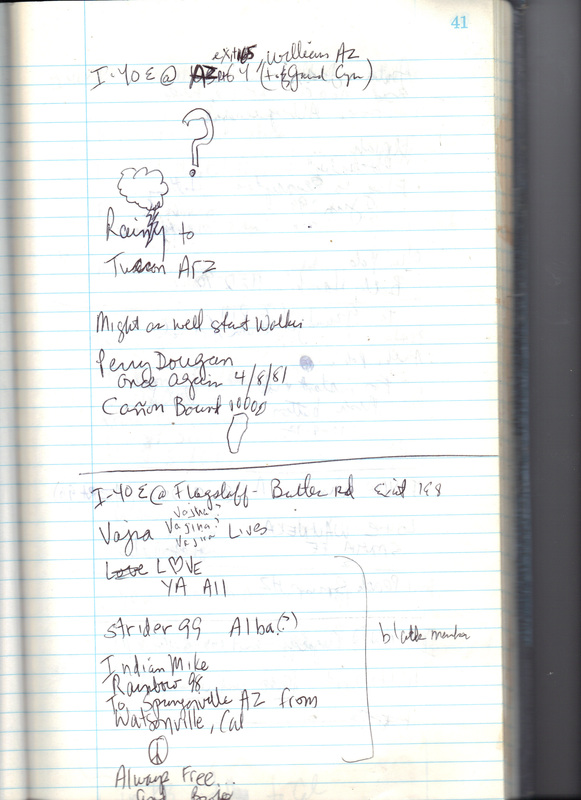 41
exit 165 William AZ
I-40 E @ AZ 64 (to Grand Cyn)
?
Rainy to
Tucson ARZ
Might as well start Walkin
Perry Dougan
once again 4/8/81
Cañon Bound
I-40 E @ Flagstaff - Butler Rd Exit 198
Vajina?
Vajra Lives
Love LOVE
YA All
Strider 99 Alba(?)
black marker
Indian Mike
Rainbow 98
To Springerville AZ from
Watsonville, Cal
Always Free...